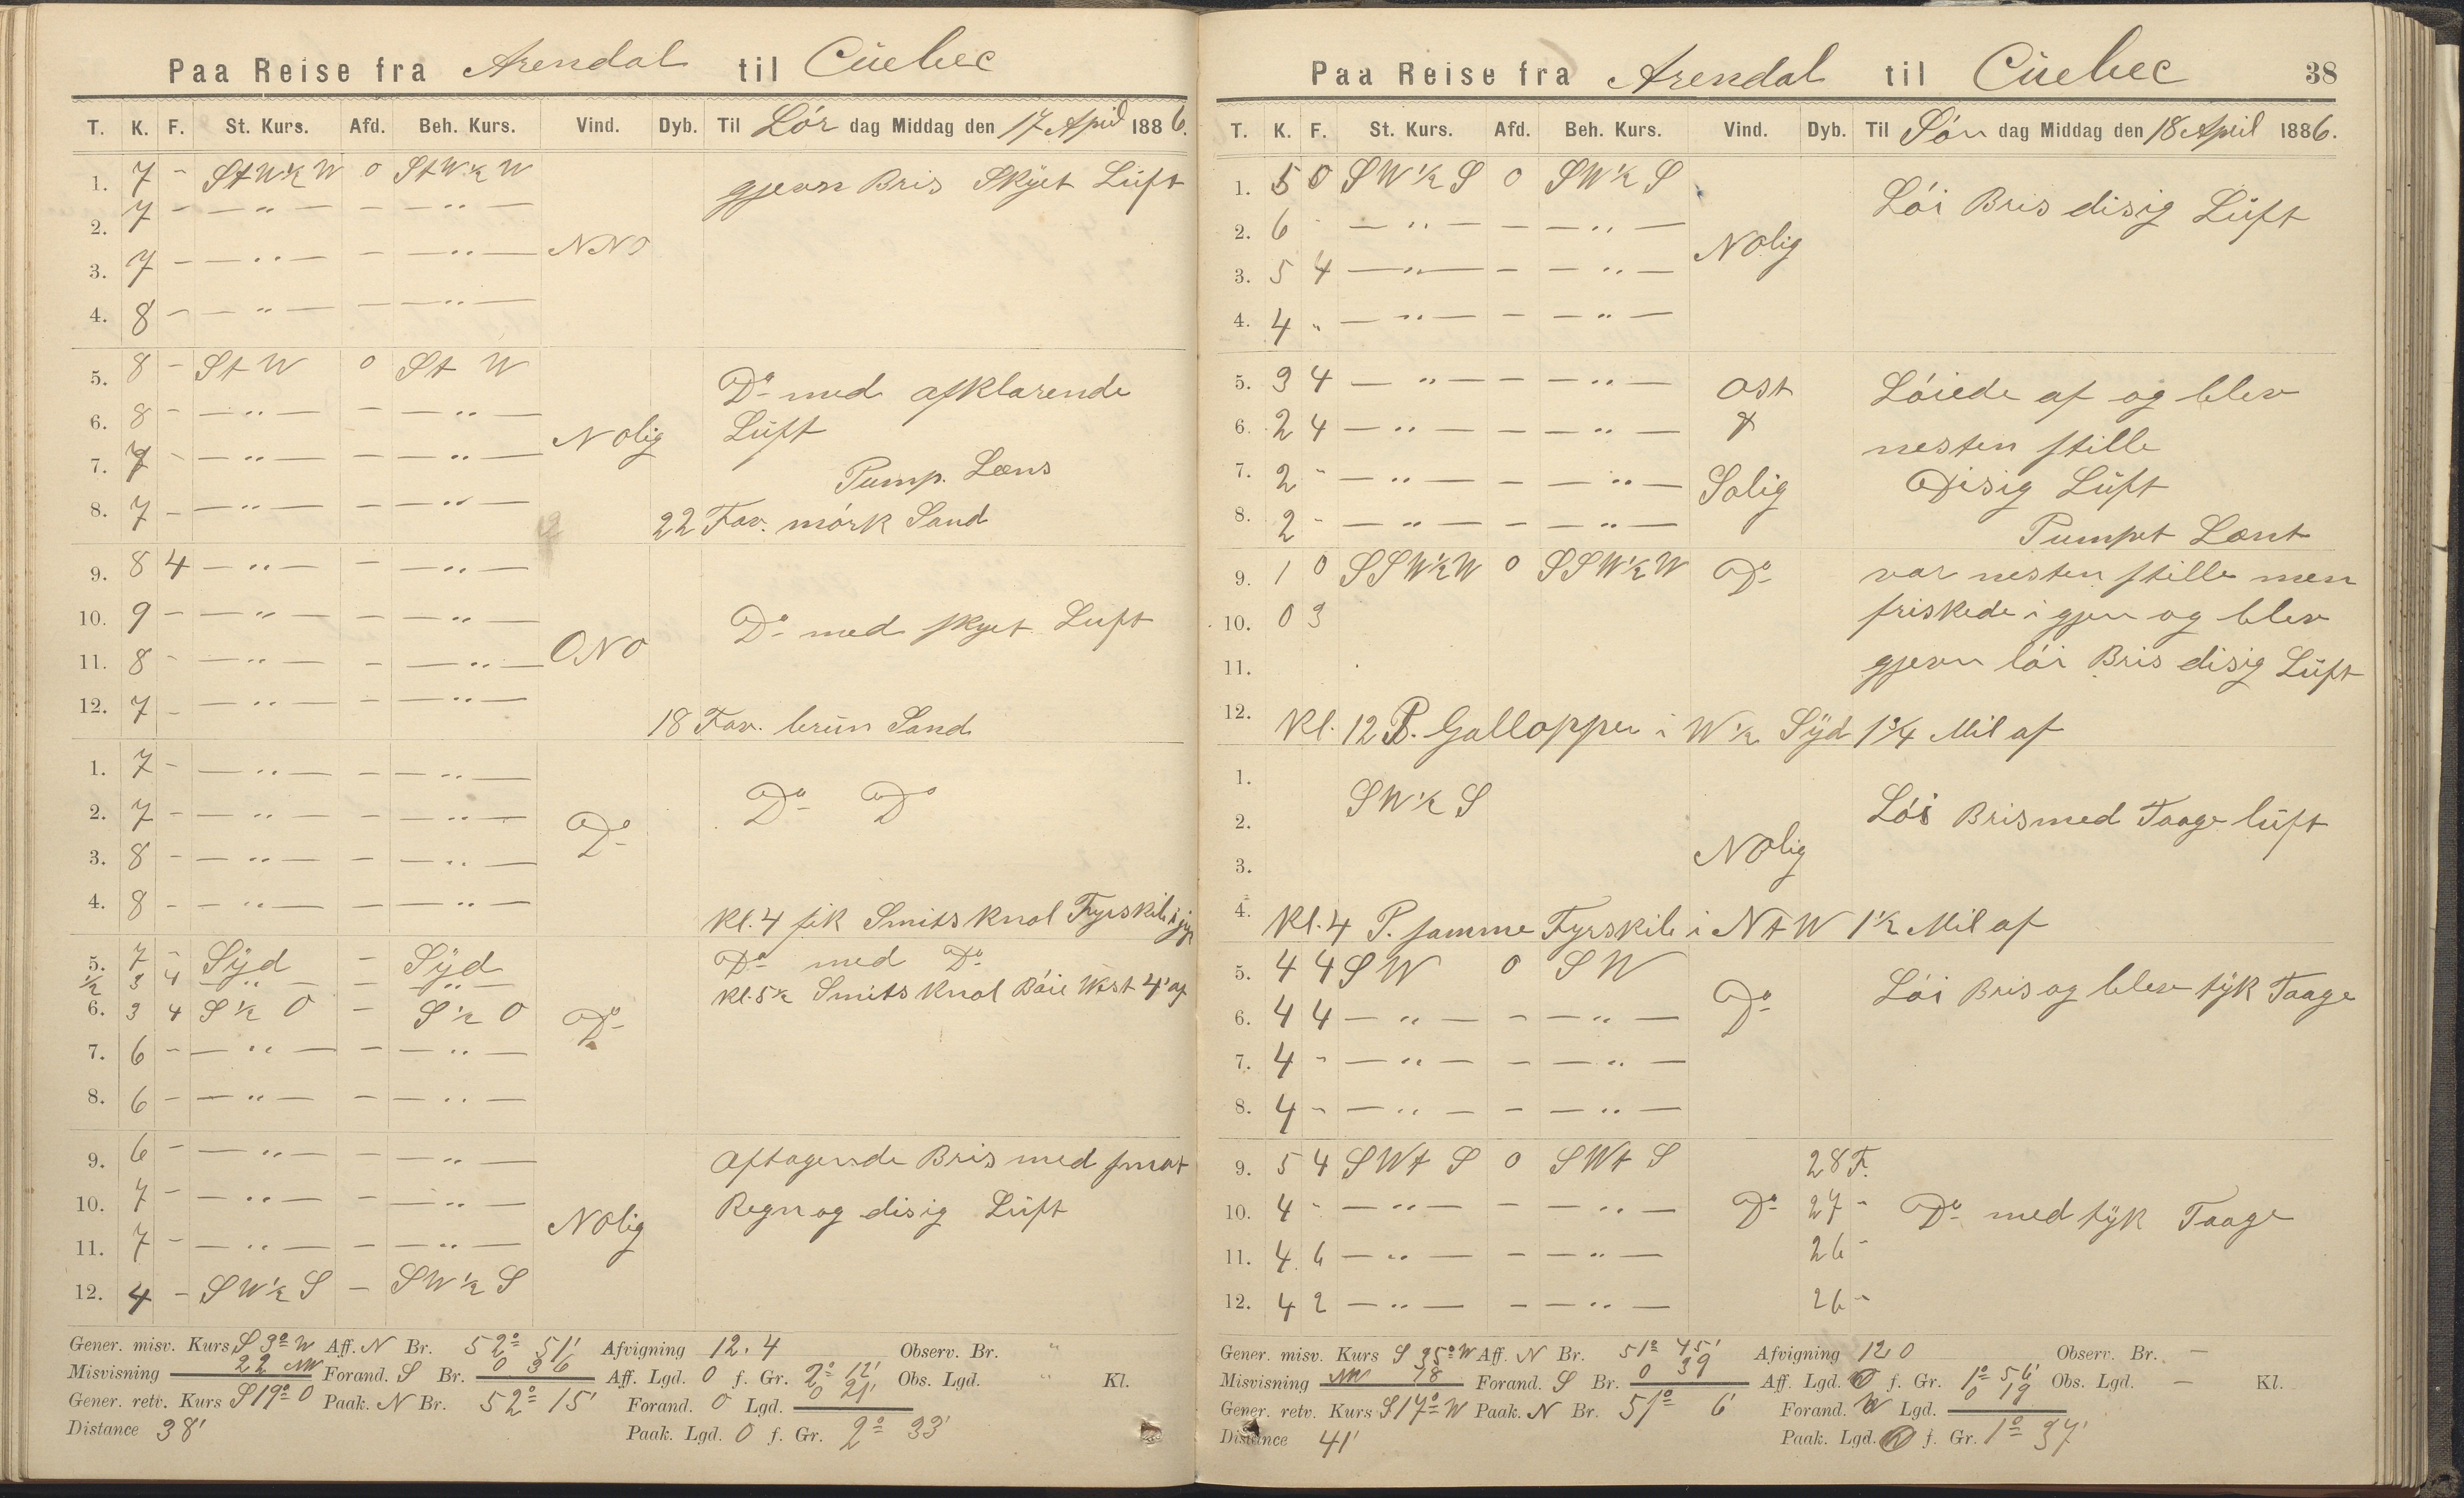 Paa Reise fra Arendal til Cüebec
T. K. F. St. Kurs. Afd. Beh. Kurs. Vind. Dyb. Til Lör dag Middag den 17 April 1886.
1. 7 - StW½W 0 StW½W gjevn Bris Skÿet Lüft
2. 7 - — " — - — " —
3. 7 - — " — - — " — NNO
4. 8 - — " — - — " —
5. 8 - St W 0 St W Do med afklarende
6. 8 - — " — - — " — Nolig Lüft
7. 7 - — " — - — " — Pump. Læns
8. 7 - — " — - — " — 22 Fav. mörk Sand
9. 8 4 — " — - — " —
10. 9 - — " — - — " — Do med skyet Luft
11. 8 - — " — - — " — ONO
12. 7 - — " — - — " — 18 Fav. brün Sand
1. 7 - — " — - — " — Do Do
2. 7 - — " — - — " — Do
3. 8 - — " — - — " —
4. 8 - — " — - — " — Kl. 4 fik Smits Knol Fyrskib i
5. 7 - Sÿd - Sÿd Do med Do
½ 3 4 — " — - — " — Kl. 5½ Smits Knol Böie West 4' af
6. 3 4 S½ O - S½ O Do
7. 6 - — " — - — " —
8. 6 - — " — - — " —
9. 6 - — " — - — " — Aftagende Bris med smat
10. 7 - — " — - — " — Regn og disig Lüft
11. 7 - — " — - — " — NOlig
12. 4 - SW½S - SW½S
Gener. misv. Kurs S 3o W Aff. N Br. 52o 51' Afvigning 12,4 Observ. Br. "
Misvisning 22 NW Forand. S Br. 0 36 Aff. Lgd. O f. Gr. 2o 12' Obs. Lgd. " Kl.
Gener. retv. Kurs S 19o O Paak. N Br. 52o 15' Forand. O Lgd. 0 21'
Distance 38' Paak. Lgd. O f. Gr. 2o 33'
Paa Reise fra Arendal til Cüebec 38
T. K. F. St. Kurs. Afd. Beh. Kurs. Vind. Dyb. Til Sön dag Middag den 18 April 1886.
1. 5 0 SW½S 0 SW½S Löi Bris disig Lüft
2. 6 - — " — - — " — NOlig
3. 5 4 — " — - — " —
4. 4 " — " — - — " —
5. 3 4 — " — - — " — Ost Löiede af og blev
6. 2 4 — " — - — " — & nesten stille
7. 2 - — " — - — " — Solig Disig Lüft
8. 2 - — " — - — " — Pumpet Lænt
9. 1 0 SSW½W 0 SSW½W Do var nesten stille men
10. 0 3 friskede i gjen og blev
11. gjevn löi Bris disig Lüft
12. Kl. 12 P. Galloppen i W½ Sÿd 1¾ Mil af
1.
2. SW½S Löi Bris med Taage lüft
3. NOlig
4. Kl. 4 P. samme Fyrskib i NtW 1½ Mil af
5. 4 4 SW 0 SW Löi Bris og blev tÿk Taage
6. 4 4 — " — - — " — Do
7. 4 - — " — - — " —
8. 4 - — " — - — " —
9. 5 4 SWt S 0 SWt S 28 F.
10. 4 - — " — - — " — Do 27 - Do med tÿk Taage
11. 4 6 — " — - — " — 26 -
12. 4 2 — " — - — " — 26 -
Gener. misv. Kurs S 35o W Aff. N Br. 51o 45' Afvigning 12,0 Observ. Br. -
Misvisning NW 18 Forand. S Br. 0 39 Aff. Lgd. O f. Gr. 1o 56' Obs. Lgd. - Kl.
Gener. retv. Kurs S 17o W Paak. N Br. 51o 6' Forand. W Lgd. 0 19
Distance 41' Paak. Lgd. O f. Gr. 1o 37'